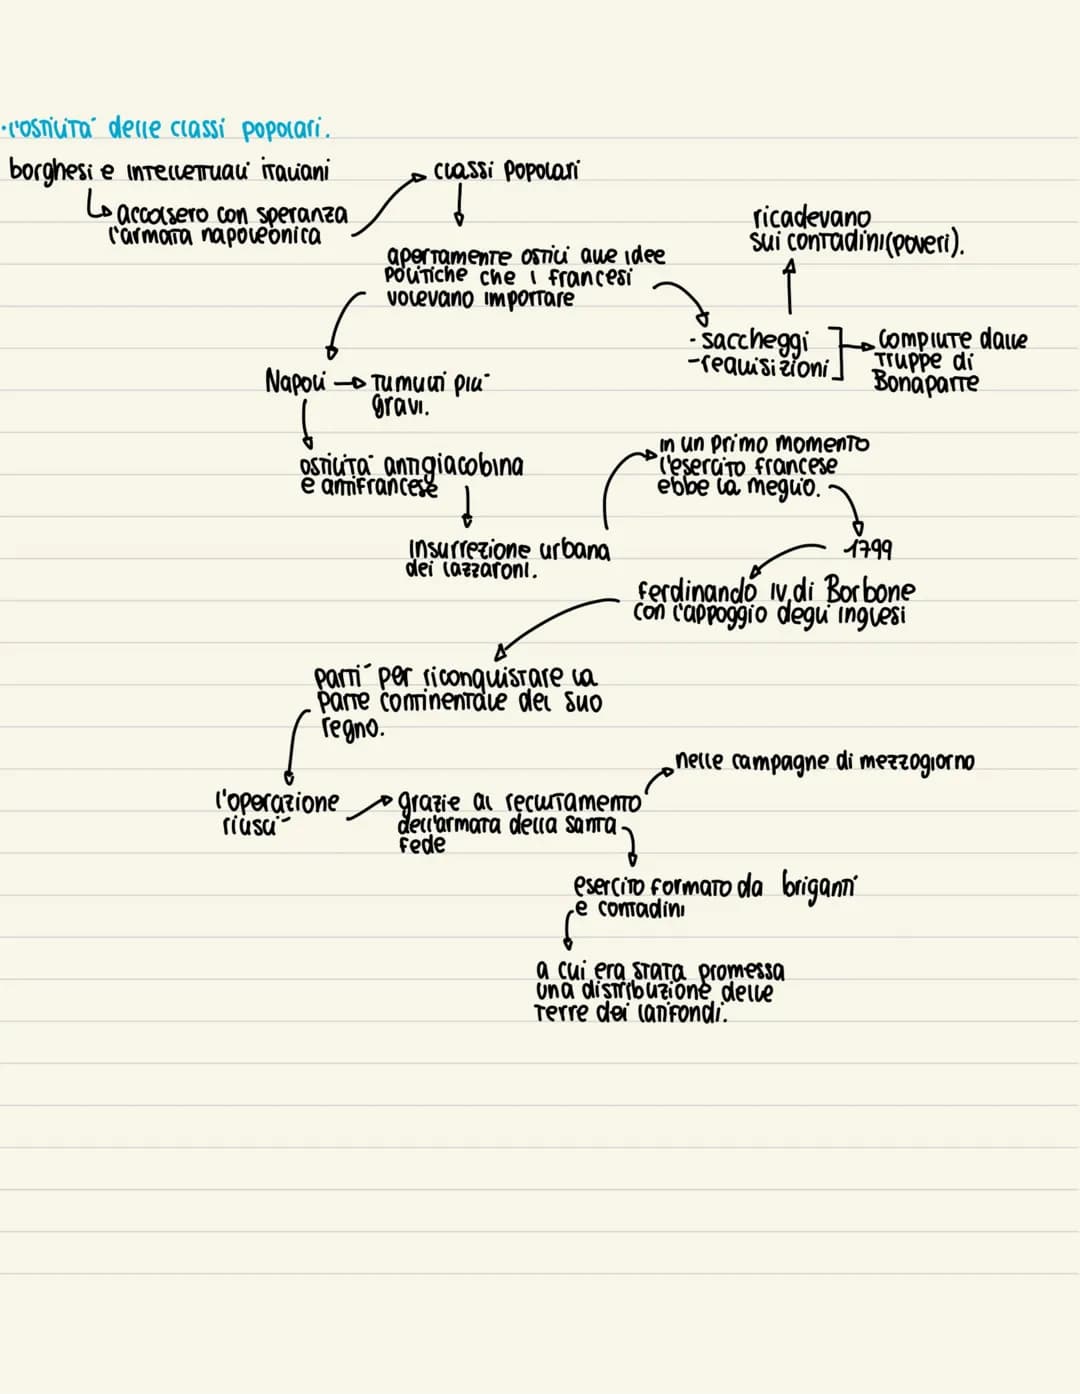 ·l'ostilità delle classi popolari.
borghesi e intellettuali italiani
accolsero con speranza
l'armata napoleonica
classi popolari
apertamente ostici alle idee
politiche che i francesi
volevano importare
ricadevano
sui contadini(poveri).
- saccheggi
-requisizioni
compiute dalle
truppe di
Bonaparte
Napoli → tumulti più
gravi.
ostilità antigiacobina
e antifrancese
insurrezione urbana
dei lazzaroni.
in un primo momento
l'esercito francese
ebbe la meglio.
1799
Ferdinando IV di Borbone
con l'appoggio degli inglesi
partì per riconquistare la
parte continentale del suo
regno.
l'operazione
riuscì
grazie al reclutamento
dell'armata della Santa
Fede
nelle campagne di mezzogiorno
esercito formato da briganti
e contadini
a cui era stata promessa
una distribuzione delle
terre dei latifondi.